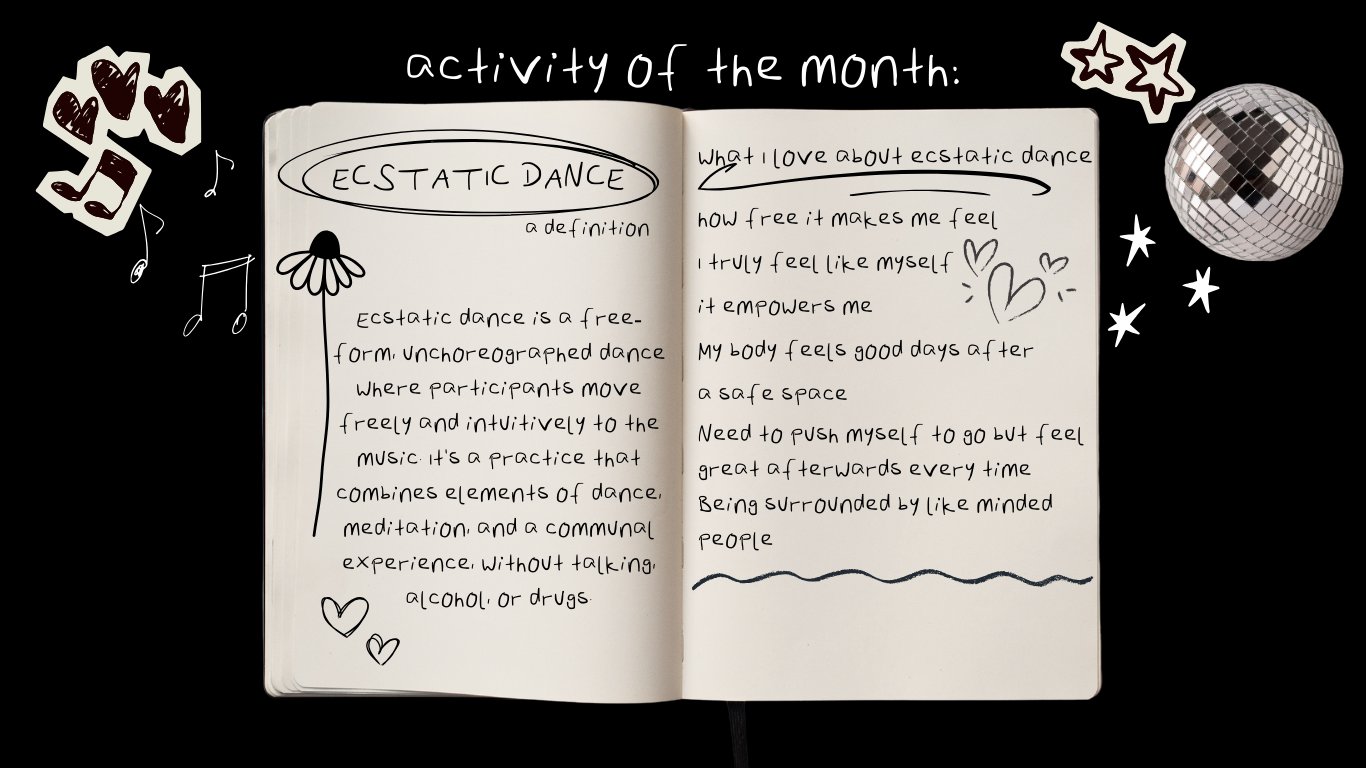 activity of the month:
ECSTATIC DANCE
a definition
Ecstatic dance is a free-
form, unchoreographed dance
where participants move
freely and intuitively to the
music. It's a practice that
combines elements of dance,
meditation, and a communal
experience, without talking,
alcohol, or drugs.
What I love about ecstatic dance
how free it makes me feel
I truly feel like myself
it empowers me
My body feels good days after
a safe space
Need to push myself to go but feel
great afterwards every time
Being surrounded by like minded
people